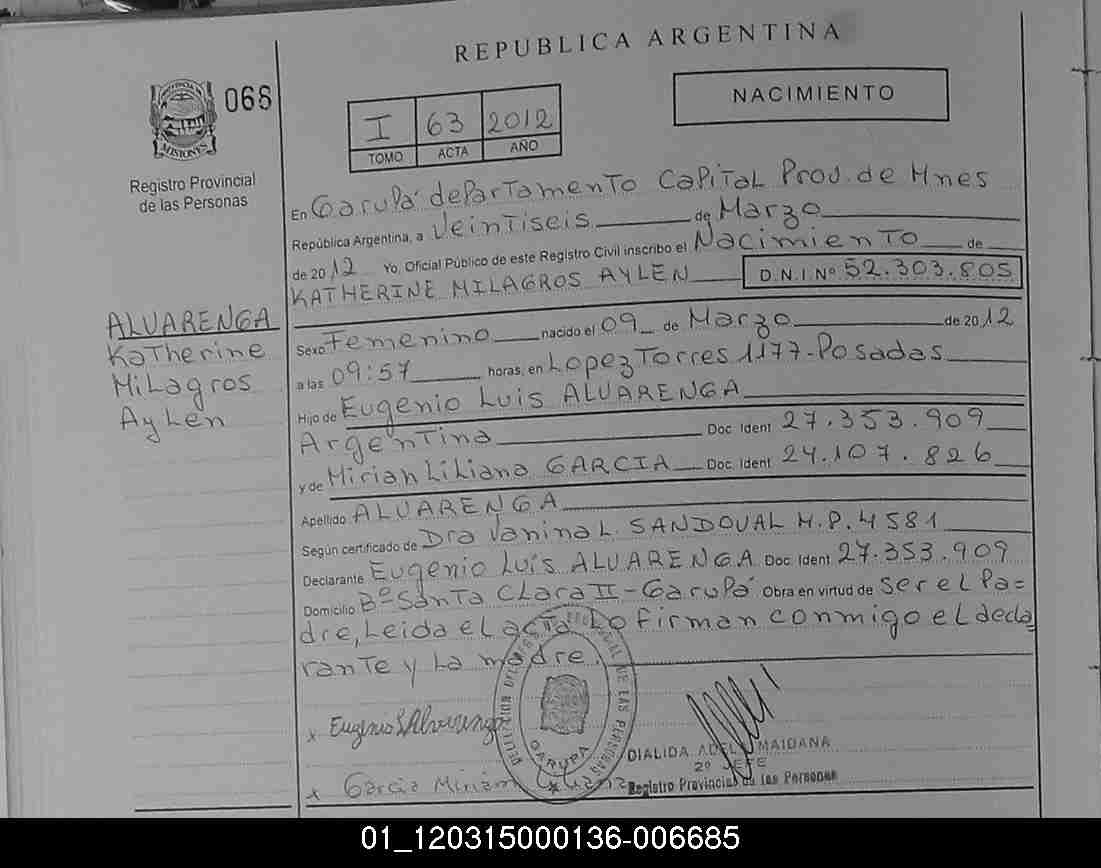 REPUBLICA ARGENTINA
PROVINCIA DE
MISIONES
066
Registro Provincial
de las Personas
I 63 2012
TOMO ACTA AÑO
NACIMIENTO
En Garupá departamento Capital Prov. de Mnes
República Argentina, a Veintiseis de Marzo
de 2012 Yo, Oficial Público de este Registro Civil inscribo el Nacimiento de
KATHERINE MILAGROS AYLEN D.N.I Nº 52.303.805
ALVARENGA
Katherine
Milagros
Aylen
Sexo Femenino nacido el 09 de Marzo de 2012
a las 09:57 horas, en Lopez Torres 1177-Posadas
Hijo de Eugenio Luis ALVARENGA
Argentina Doc. Ident 27.353.909
y de Mirian Liliana GARCIA Doc. Ident 24.107.826
Apellido ALVARENGA
Según certificado de Dra Vanina L. SANDOVAL M.P. 4581
Declarante Eugenio Luis ALVARENGA Doc. Ident 27.353.909
Domicilio Bº Santa Clara II - Garupá Obra en virtud de ser el Pa=
dre, Leida el acta Lo firman conmigo el decla
rante y La madre.
x Eugenio L Alvarenga
x Garcia Miriam Liliana
GARUPA
DE LAS PERSONAS
DIALIDA ADELA MAIDANA
2º JEFE
Registro Provincial de las Personas
01_120315000136-006685